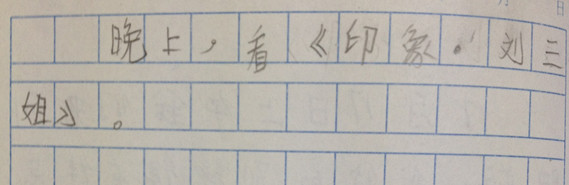 晚上，看《印象·刘三
姐》。